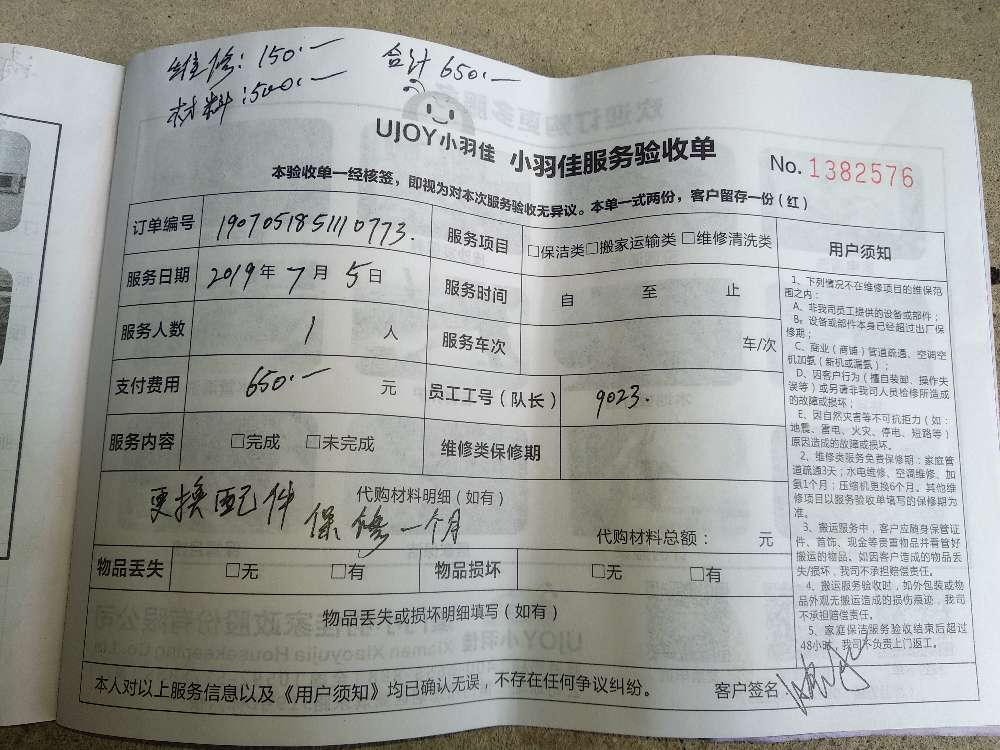 维修：150.一 合计 650.一
材料：500.一
UJOY小羽佳 小羽佳服务验收单 No. 1382576
本验收单一经核签，即视为对本次服务验收无异议。本单一式两份，客户留存一份（红）
订单编号 190705185111 0773. 服务项目 □保洁类□搬家运输类 □维修清洗类
服务日期 2019 年 7 月 5 日 服务时间 自 至 止
服务人数 1 人 服务车次 车/次
支付费用 650.一 元 员工工号（队长） 9023.
服务内容 □完成 □未完成 维修类保修期
代购材料明细（如有）
更换配件 保修一个月
代购材料总额： 元
物品丢失 □无 □有 物品损坏 □无 □有
物品丢失或损坏明细填写（如有）
本人对以上服务信息以及《用户须知》均已确认无误，不存在任何争议纠纷。 客户签名：
用户须知
1、下列情况不在维修项目的维保范
围之内：
A、非我司员工提供的设备或部件；
B、设备或部件本身已经超过出厂保
修期；
C、商业（商铺）管道疏通、空调空
机加氨（新机或漏氨）；
D、因客户行为（擅自装卸、操作失
误等）或另请非我司人员检修所造成
的故障或损坏；
E、因自然灾害等不可抗拒力（如：
地震、雷电、火灾、停电、短路等）
原因造成的故障或损坏。
2、维修类服务免费保修期：家庭管
道疏通3天；水电维修、空调维修、加
氨1个月；压缩机更换6个月。其他维
修项目以服务验收单填写的保修期为
准。
3、搬运服务中，客户应随身保管证
件、首饰、现金等贵重物品并看管好
搬运的物品。如因客户造成的物品丢
失/损坏，我司不承担赔偿责任。
4、搬运服务验收时，如外包装或物
品外观无搬运造成的损伤痕迹，我司
不承担赔偿责任。
5、家庭保洁服务验收结束后超过
48小时，我司不负责上门返工。